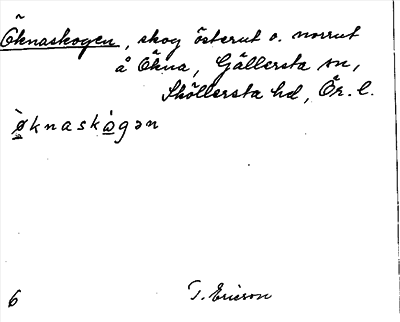 Öknaskogen, skog österut o. norrut
å Ökna, Gällersta sn,
Sköllersta hd, Ör. l.
ø̀knaskà̱gən
6
T. Ericson